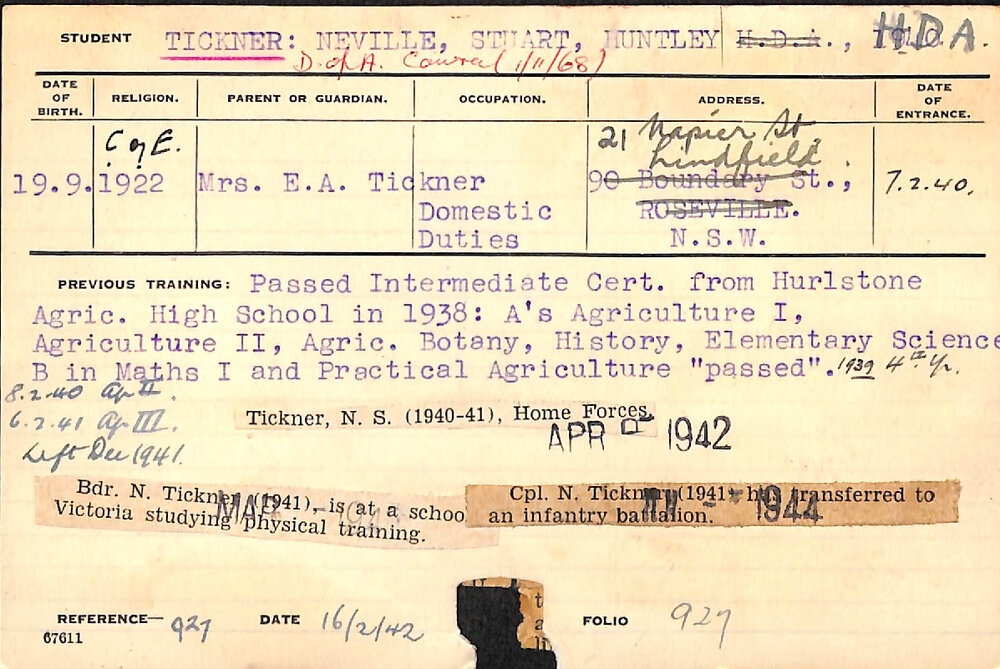 STUDENT TICKNER: NEVILLE, STUART, HUNTLEY H.D.A., H.D.A.
D. of A. Cowra (1/11/68)
DATE OF BIRTH. RELIGION. PARENT OR GUARDIAN. OCCUPATION. ADDRESS. DATE OF ENTRANCE.
C of E. 21 Napier St,
Lindfield.
19.9.1922 Mrs. E.A. Tickner 90 Boundary St., 7.2.40.
Domestic ROSEVILLE.
Duties N.S.W.
PREVIOUS TRAINING: Passed Intermediate Cert. from Hurlstone
Agric. High School in 1938: A's Agriculture I,
Agriculture II, Agric. Botany, History, Elementary Science
B in Maths I and Practical Agriculture "passed". 1939 4th Yr.
8.2.40 Ag II.
6.2.41 Ag III.
Left Dec 1941.
Tickner, N. S. (1940-41), Home Forces.
APR 1942
Bdr. N. Tickner (1941), is at a school
Victoria studying physical training.
MAR
Cpl. N. Tickner (1941) has transferred to
an infantry battalion.
1944
REFERENCE— 927 DATE 16/2/42 FOLIO 927
67611